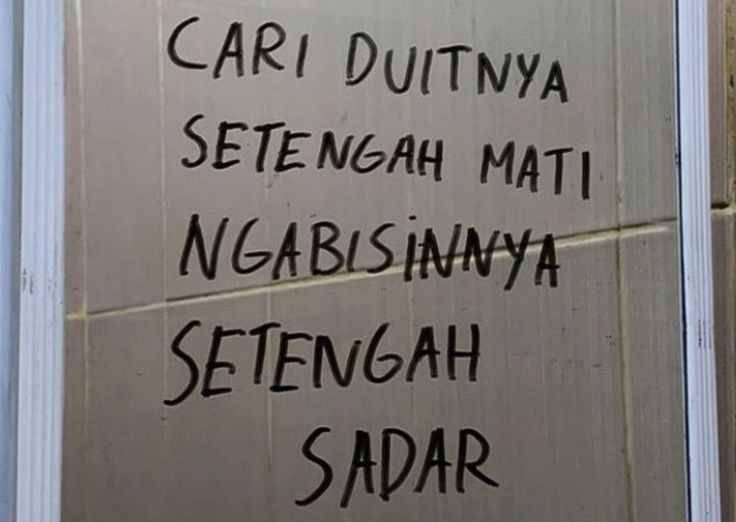 CARI DUITNYA
SETENGAH MATI
NGABISiNNYA
SETENGAH
SADAR